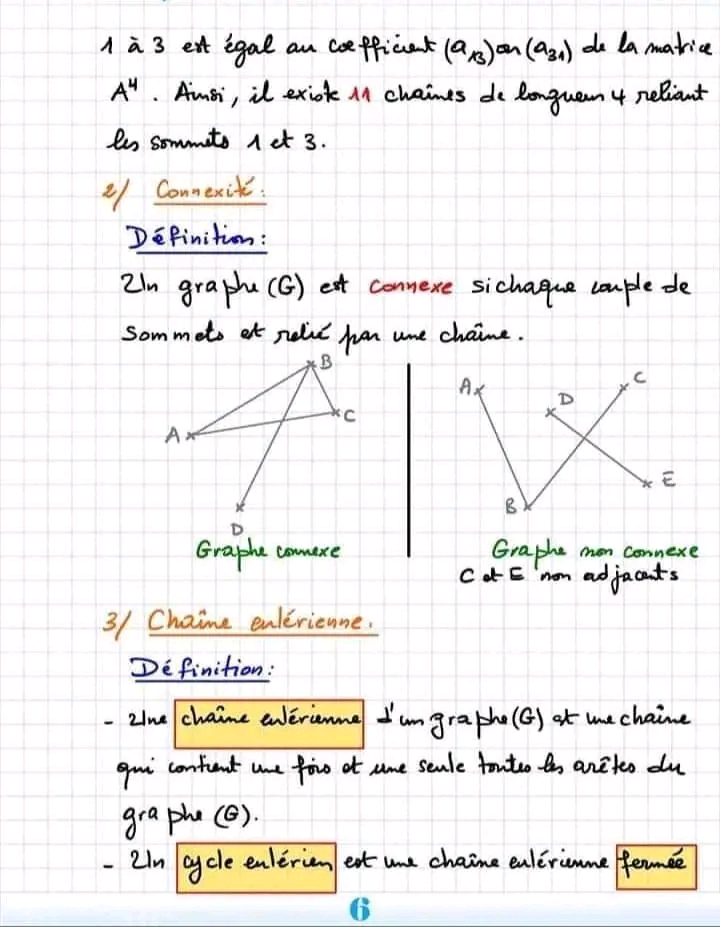 1 à 3 est égal au coefficient (a₁₃) ou (a₃₁) de la matrice
A⁴. Ainsi, il existe 11 chaînes de longueur 4 reliant
les sommets 1 et 3.
2/ Connexité :
Définition :
Un graphe (G) est connexe si chaque couple de
sommets et relié par une chaîne.
B
C
A
D
Graphe connexe
A
C
D
E
B
Graphe non connexe
C et E non adjacents
3/ Chaîne eulérienne.
Définition :
- Une chaîne eulérienne d'un graphe (G) est une chaîne
qui contient une fois et une seule toutes les arêtes du
graphe (G).
- Un cycle eulérien est une chaîne eulérienne fermée
6